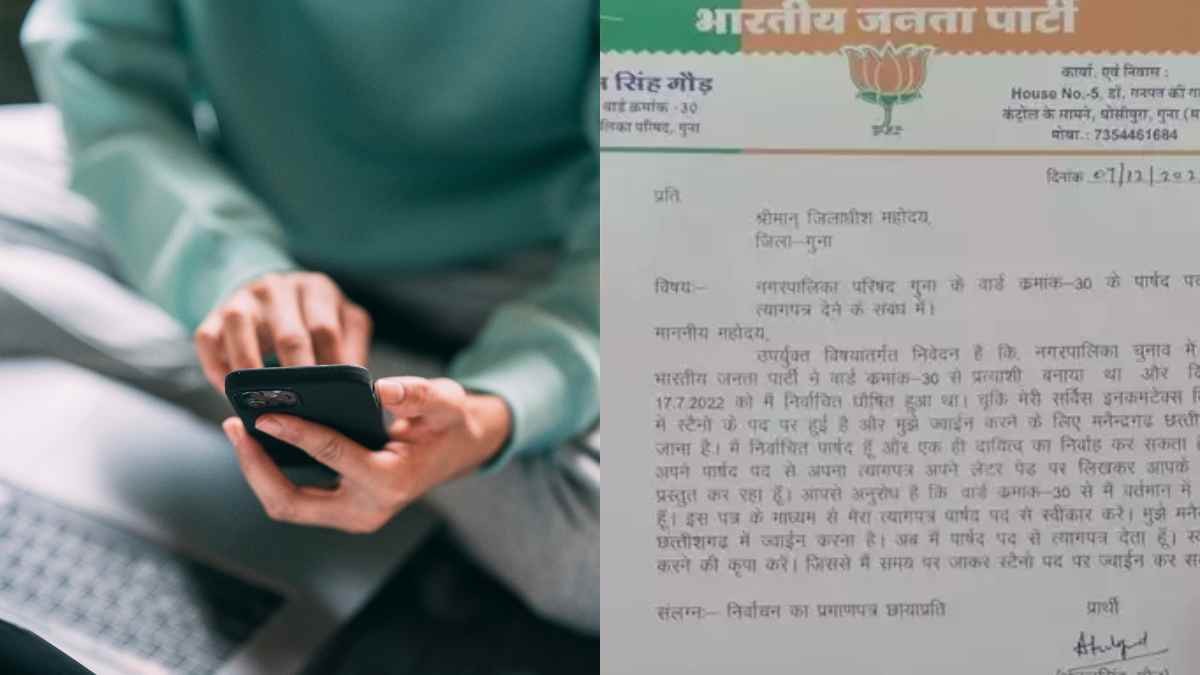 भारतीय जनता पार्टी
सिंह गौड़
वार्ड क्रमांक -30
परिषद, गुना
कार्या. एवं निवास :
House No.-5, डॉ. गनपत की
कंट्रोल के सामने, घोसीपुरा, गुना
मोबा.: 7354461684
दिनांक 07/12/202
प्रति,
श्रीमान् जिलाधीश महोदय,
जिला–गुना
विषय:– नगरपालिका परिषद गुना के वार्ड क्रमांक–30 के पार्षद पद
त्यागपत्र देने के संबंध में।
माननीय महोदय,
उपर्युक्त विषयातर्गत निवेदन है कि, नगरपालिका चुनाव में
भारतीय जनता पार्टी ने वार्ड क्रमांक–30 से प्रत्याशी बनाया था और
17.7.2022 को मैं निर्वाचित घोषित हुआ था। चूंकि मेरी सर्विस इनकमटेक्स
में स्टेनो के पद पर हुई है और मुझे ज्वाईन करने के लिए मनेन्द्रगढ़
जाना है। मैं निर्वाचित पार्षद हूँ और एक ही दायित्व का निर्वाह कर सकता
अपने पार्षद पद से अपना त्यागपत्र अपने लेटर पेड पर लिखकर आपके
प्रस्तुत कर रहा हूँ। आपसे अनुरोध है कि वार्ड क्रमांक–30 से मैं वर्तमान में
हूँ। इस पत्र के माध्यम से मेरा त्यागपत्र पार्षद पद से स्वीकार करें। मुझे
छत्तीसगढ़ में ज्वाईन करना है। अब मैं पार्षद पद से त्यागपत्र देता हूँ।
करने की कृपा करें। जिससे मैं समय पर जाकर स्टेनो पद पर ज्वाईन कर
संलग्न:– निर्वाचन का प्रमाणपत्र छायाप्रति
प्रार्थी